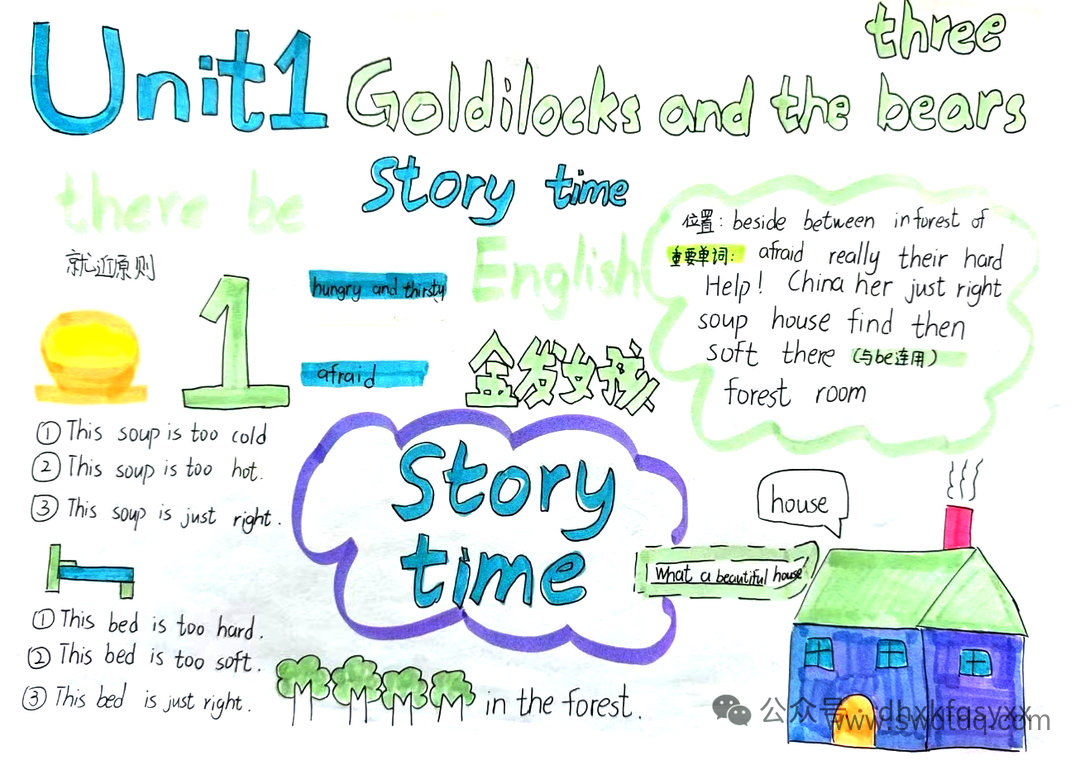 Unit1
three
Goldilocks and the bears
Story time
there be
就近原则
1
hungry and thirsty
afraid
English
金发女孩
位置: beside between in forest of
重要单词: afraid really their hard
Help! China her just right
soup house find then
soft there (与be连用)
forest room
① This soup is too cold
② This soup is too hot.
③ This soup is just right.
Story
time
house
What a beautiful house
① This bed is too hard.
② This bed is too soft.
③ This bed is just right.
in the forest.
公众号 · dhxkfqsyxx